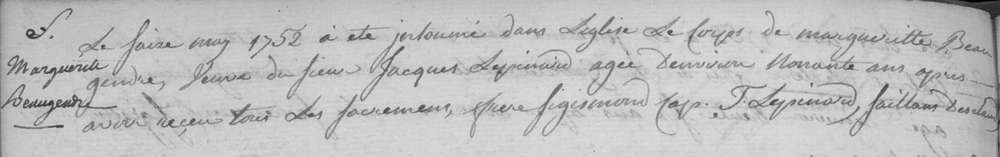 S.
Marguerite
Beaugendre
Le saize may 1752 à eté inhumé dans l'eglise Le Corps de margueritte Beau
gendre, Veuve du sieur Jacques Lepinard agée d'environ Nonante ans apres
avoir reçeu tous les sacremens, frere sigismond Cap. J. Lepinard,